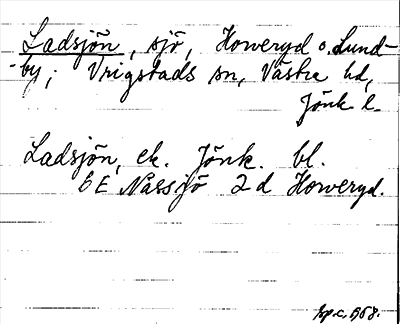 Ladsjön, sjö, Howeryd o. Lund-
-by; Vrigstads sn, Västra hd,
Jönk. l.
Ladsjön, ek. Jönk. bl.
6 E Nässjö 2 d Howeryd.
1968.